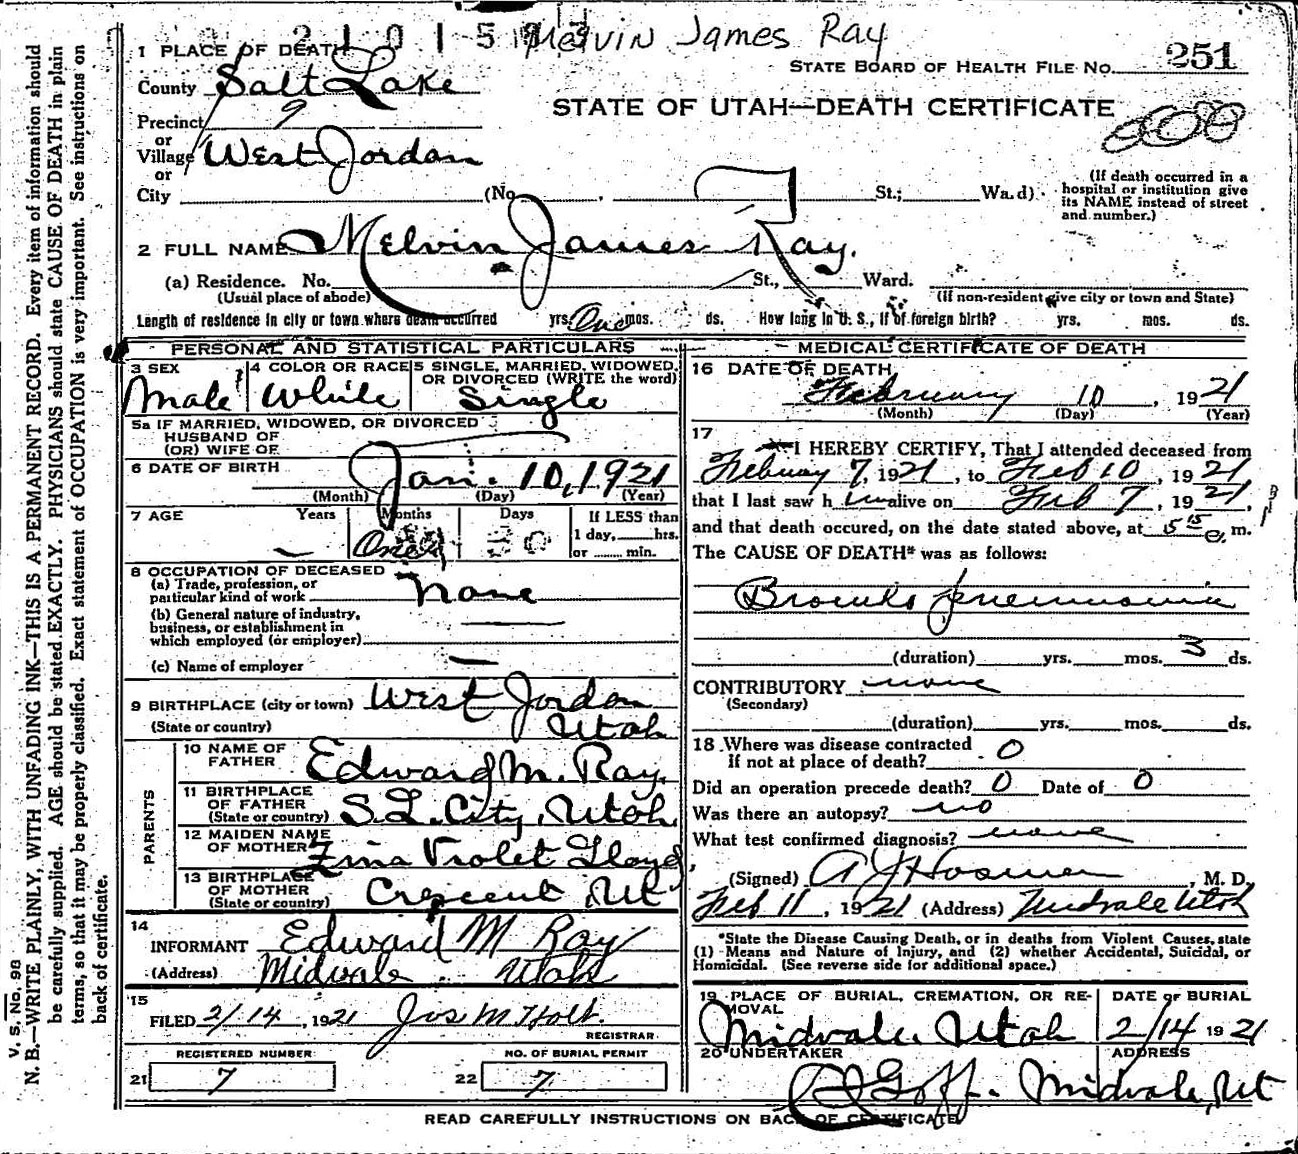 210159
Melvin James Ray
1 PLACE OF DEATH
STATE BOARD OF HEALTH FILE NO. 251
County Salt Lake
STATE OF UTAH—DEATH CERTIFICATE
Precinct 9
or
Village West Jordan
or
City (No. St.; Ward)
(If death occurred in a
hospital or institution give
its NAME instead of street
and number.)
2 FULL NAME Melvin James Ray.
(a) Residence. No. St., Ward.
(Usual place of abode) (If non-resident give city or town and State)
Length of residence in city or town where death occurred yrs. One mos. ds. How long in U. S., if of foreign birth? yrs. mos. ds.
PERSONAL AND STATISTICAL PARTICULARS
3 SEX 4 COLOR OR RACE 5 SINGLE, MARRIED, WIDOWED,
OR DIVORCED (WRITE the word)
Male White Single
5a IF MARRIED, WIDOWED, OR DIVORCED
HUSBAND OF
(OR) WIFE OF
6 DATE OF BIRTH Jan. 10, 1921
(Month) (Day) (Year)
7 AGE Years Months Days If LESS than
1 day, hrs.
One or min.
8 OCCUPATION OF DECEASED
(a) Trade, profession, or
particular kind of work None
(b) General nature of industry,
business, or establishment in
which employed (or employer)
(c) Name of employer
9 BIRTHPLACE (city or town) West Jordan
(State or country) Utah
PARENTS
10 NAME OF
FATHER Edward M. Ray.
11 BIRTHPLACE
OF FATHER
(State or country) S.L. City, Utah
12 MAIDEN NAME
OF MOTHER Zina Violet Lloyd
13 BIRTHPLACE
OF MOTHER
(State or country) Crescent, Ut
14
INFORMANT Edward M Ray
(Address) Midvale Utah
15
FILED 2/14, 1921 Jos M Holt.
REGISTRAR
REGISTERED NUMBER NO. OF BURIAL PERMIT
21 7 22 7
MEDICAL CERTIFICATE OF DEATH
16 DATE OF DEATH
February 10, 1921
(Month) (Day) (Year)
17
I HEREBY CERTIFY, That I attended deceased from
February 7, 1921, to Feb 10, 1921
that I last saw h im alive on Feb 7, 1921,
and that death occured, on the date stated above, at 5 15 m.
The CAUSE OF DEATH* was as follows:
Broncho pneumonia
(duration) yrs. mos. 3 ds.
CONTRIBUTORY none
(Secondary)
(duration) yrs. mos. ds.
18 Where was disease contracted
If not at place of death? 0
Did an operation precede death? 0 Date of 0
Was there an autopsy? no
What test confirmed diagnosis? none
(Signed) A J Hosmer, M. D.
Feb 11, 1921 (Address) Midvale Utah
*State the Disease Causing Death, or in deaths from Violent Causes, state
(1) Means and Nature of Injury, and (2) whether Accidental, Suicidal, or
Homicidal. (See reverse side for additional space.)
19 PLACE OF BURIAL, CREMATION, OR RE-
MOVAL DATE OF BURIAL
Midvale, Utah 2/14 1921
20 UNDERTAKER ADDRESS
Goff. Midvale, Ut
READ CAREFULLY INSTRUCTIONS ON BACK OF CERTIFICATE
V. S. No. 98
N. B.—WRITE PLAINLY, WITH UNFADING INK—THIS IS A PERMANENT RECORD. Every item of information should
be carefully supplied. AGE should be stated EXACTLY. PHYSICIANS should state CAUSE OF DEATH in plain
terms, so that it may be properly classified. Exact statement of OCCUPATION is very important. See instructions on
back of certificate.